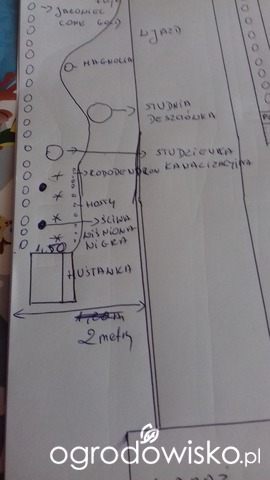 JAŁOWIEC
WJAZD
MAGNOLIA
STUDNIA
DESZCZÓWKA
STUDZIENKA
KANALIZACYJNA
RODODENDRON
HOSTY
ŚLIWA
WIŚNIOWA
NIGRA
1,50
HUŚTAWKA
2 metry
ogrodowisko.pl